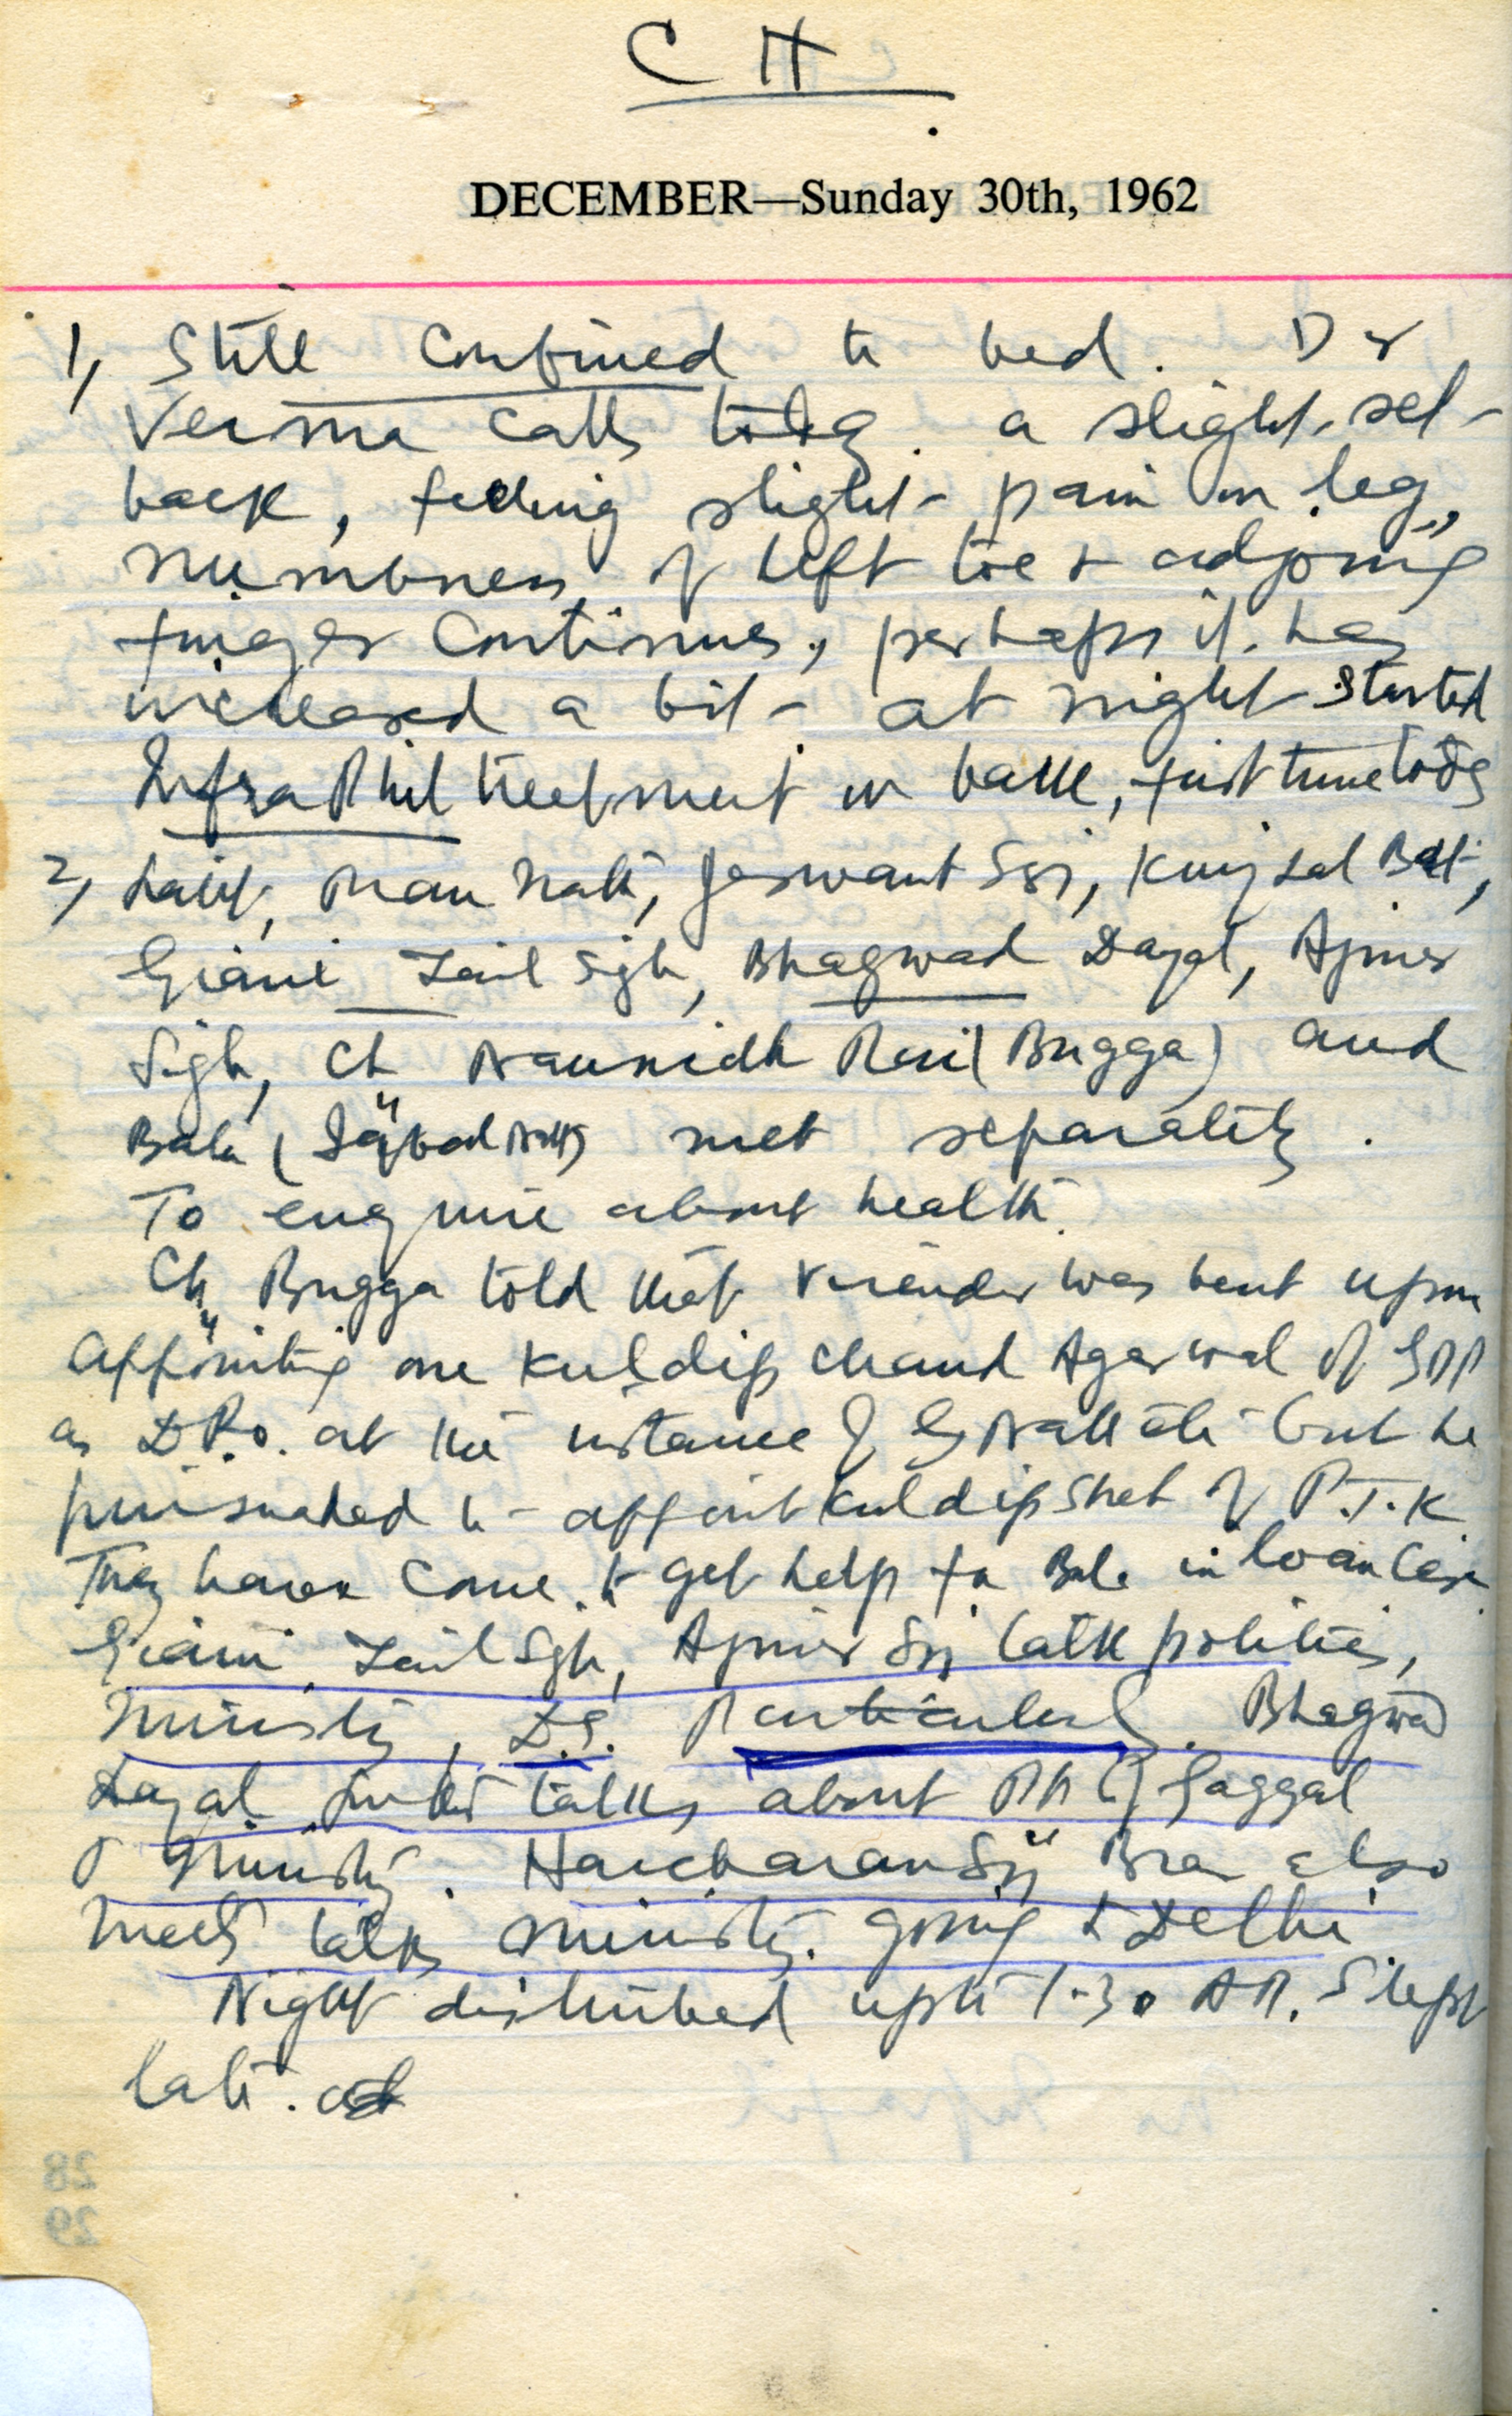 C H
DECEMBER—Sunday 30th, 1962
1, Still Confined to bed. Dr
Verma calls today. a slight set-
back, feeling slight pain in leg,
numbness of left toe & adjoing
finger continues, perhaps it has
increased a bit - at night started
InfraPhil treetment in back, first time today
2, Man Nath, Jaswant Sgj,
Giani Zail Sigh, Bhagwad Dayal, Ajmer
Sigh, Ch Naunidh Rai (Bugga) and
Bala ( met separately.
To enquire about health.
Ch Bugga told that Virender was bent upon
appointing one Kuldip Chand Agarwal of
as D.P.o. at the instance of but he
pursuaded to appoint Kuldip of P.T.K
They have come to get help for Bala in loan case.
Giani Zail Sgh, Ajmer Sgj talk politics,
Ministry, D.S. Particularly. Bhagwad
Dayal talks about
& Ministry. Harcharan Sgj Brar also
meets talks ministry. going to Delhi
Night disturbed upto 1-30 AM. Slept
late.
28
29